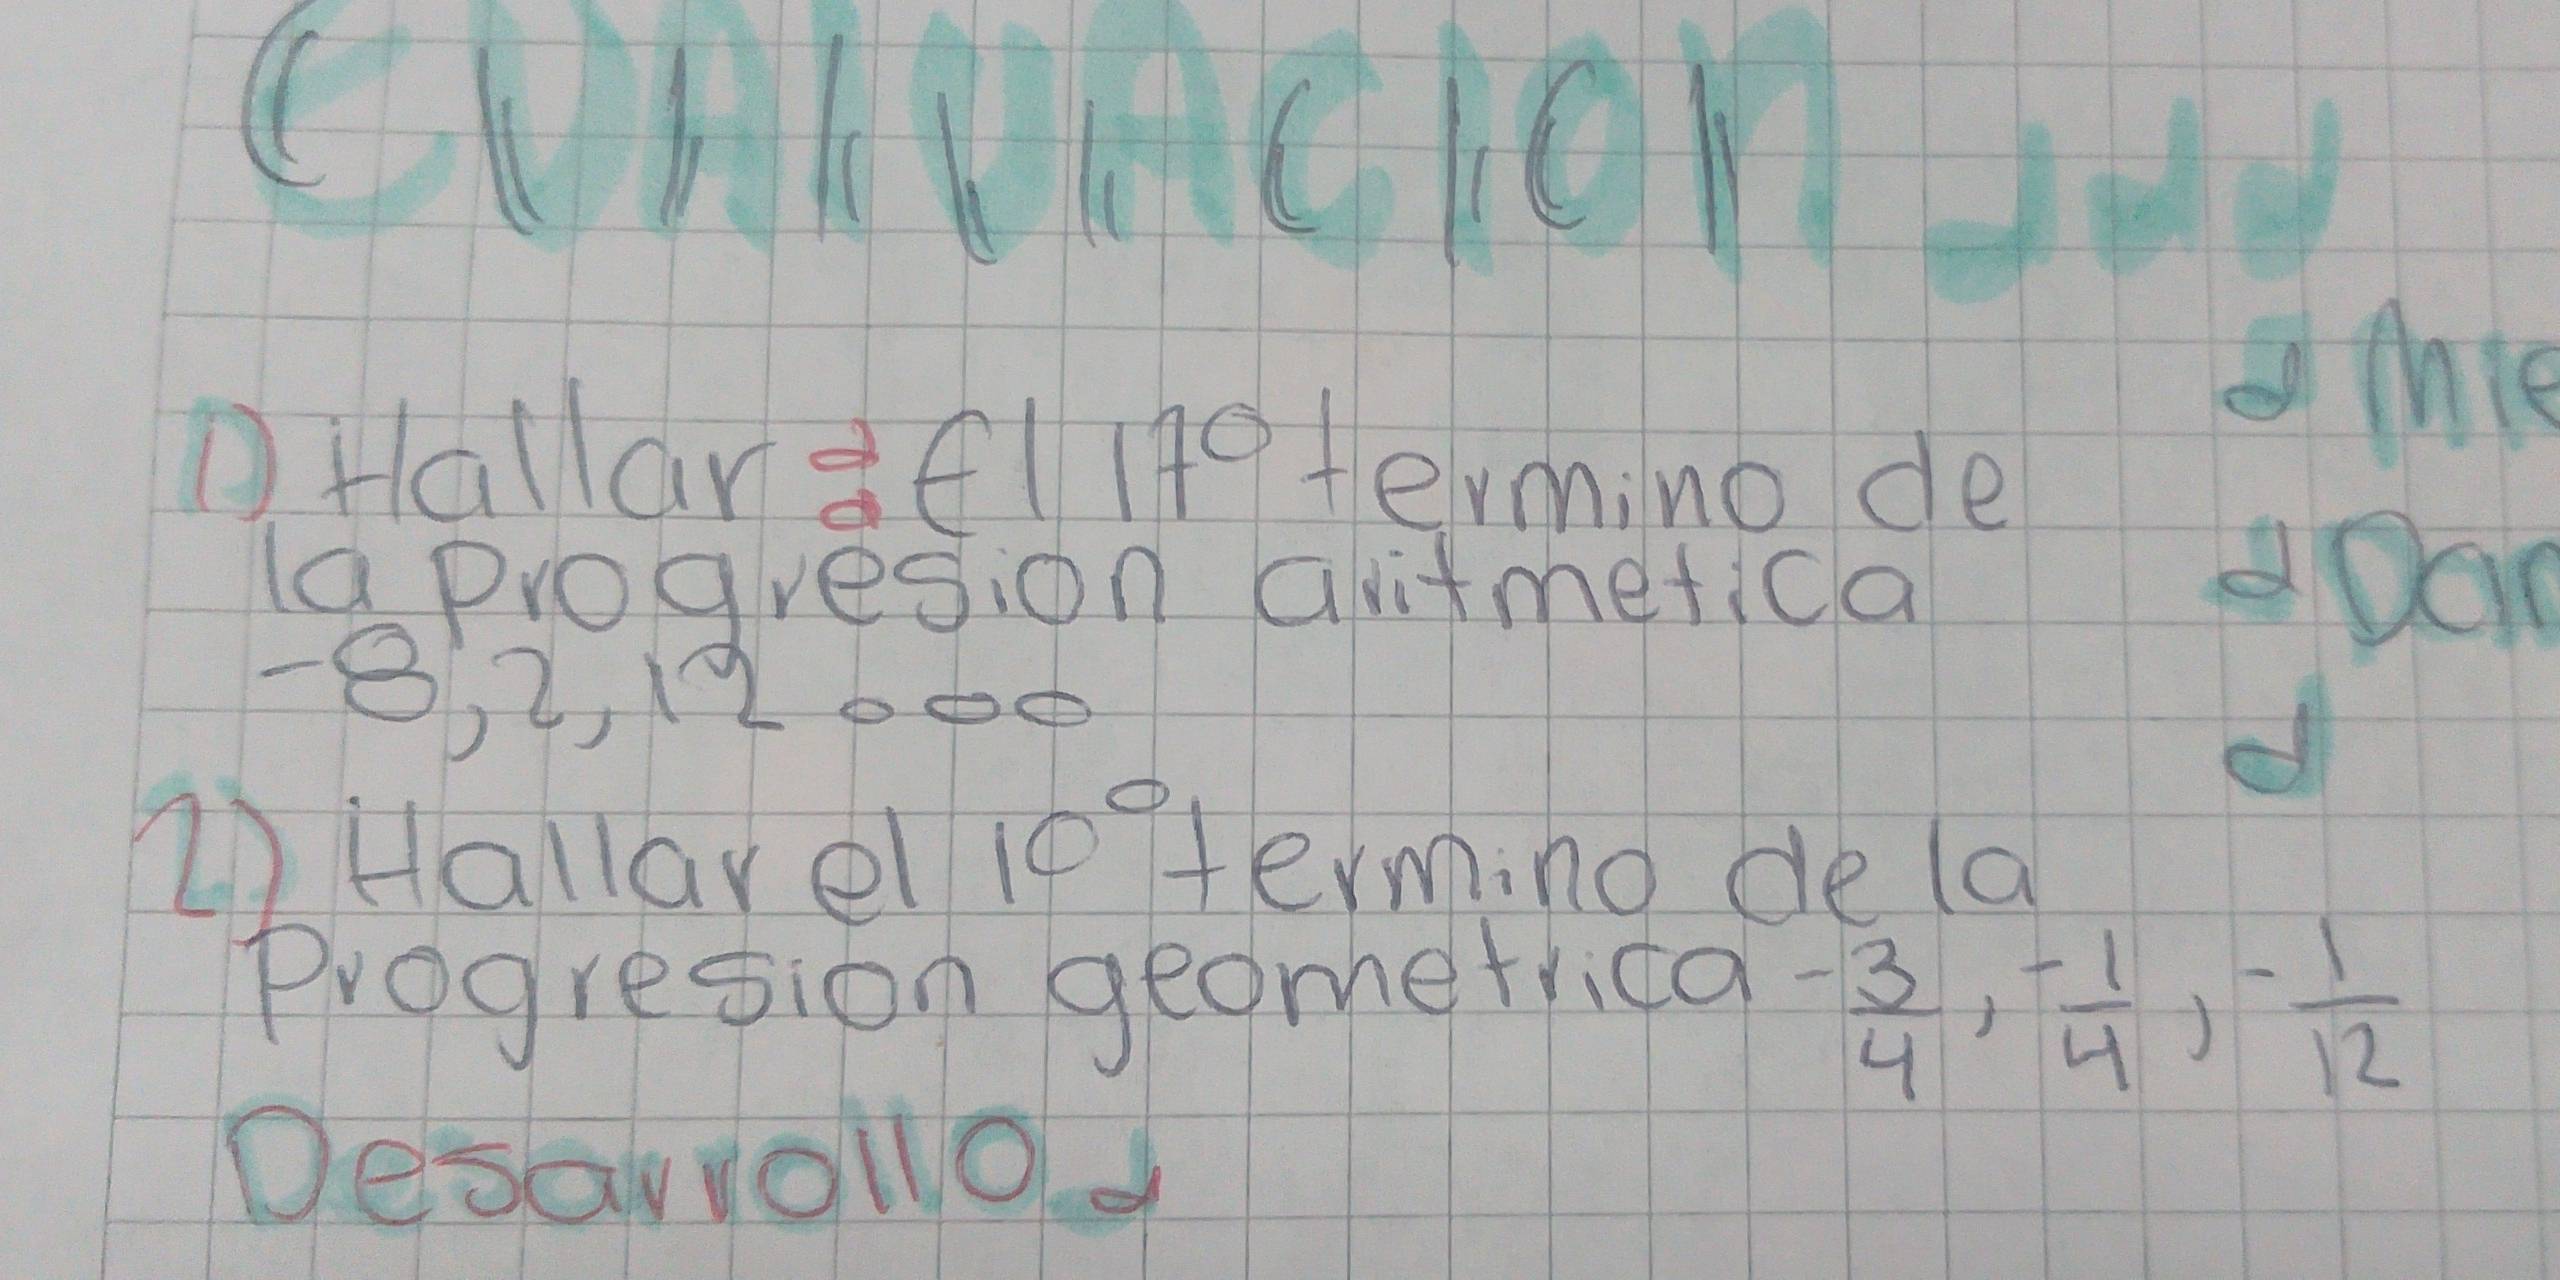 EVALUACION
1) Hallar: El 17° termino de
la progresion aritmetica
-8, 2, 12 ...
2) Hallar el 10° termino de la
Progresion geometrica -3/4, -1/4, -1/12
Desarrollo